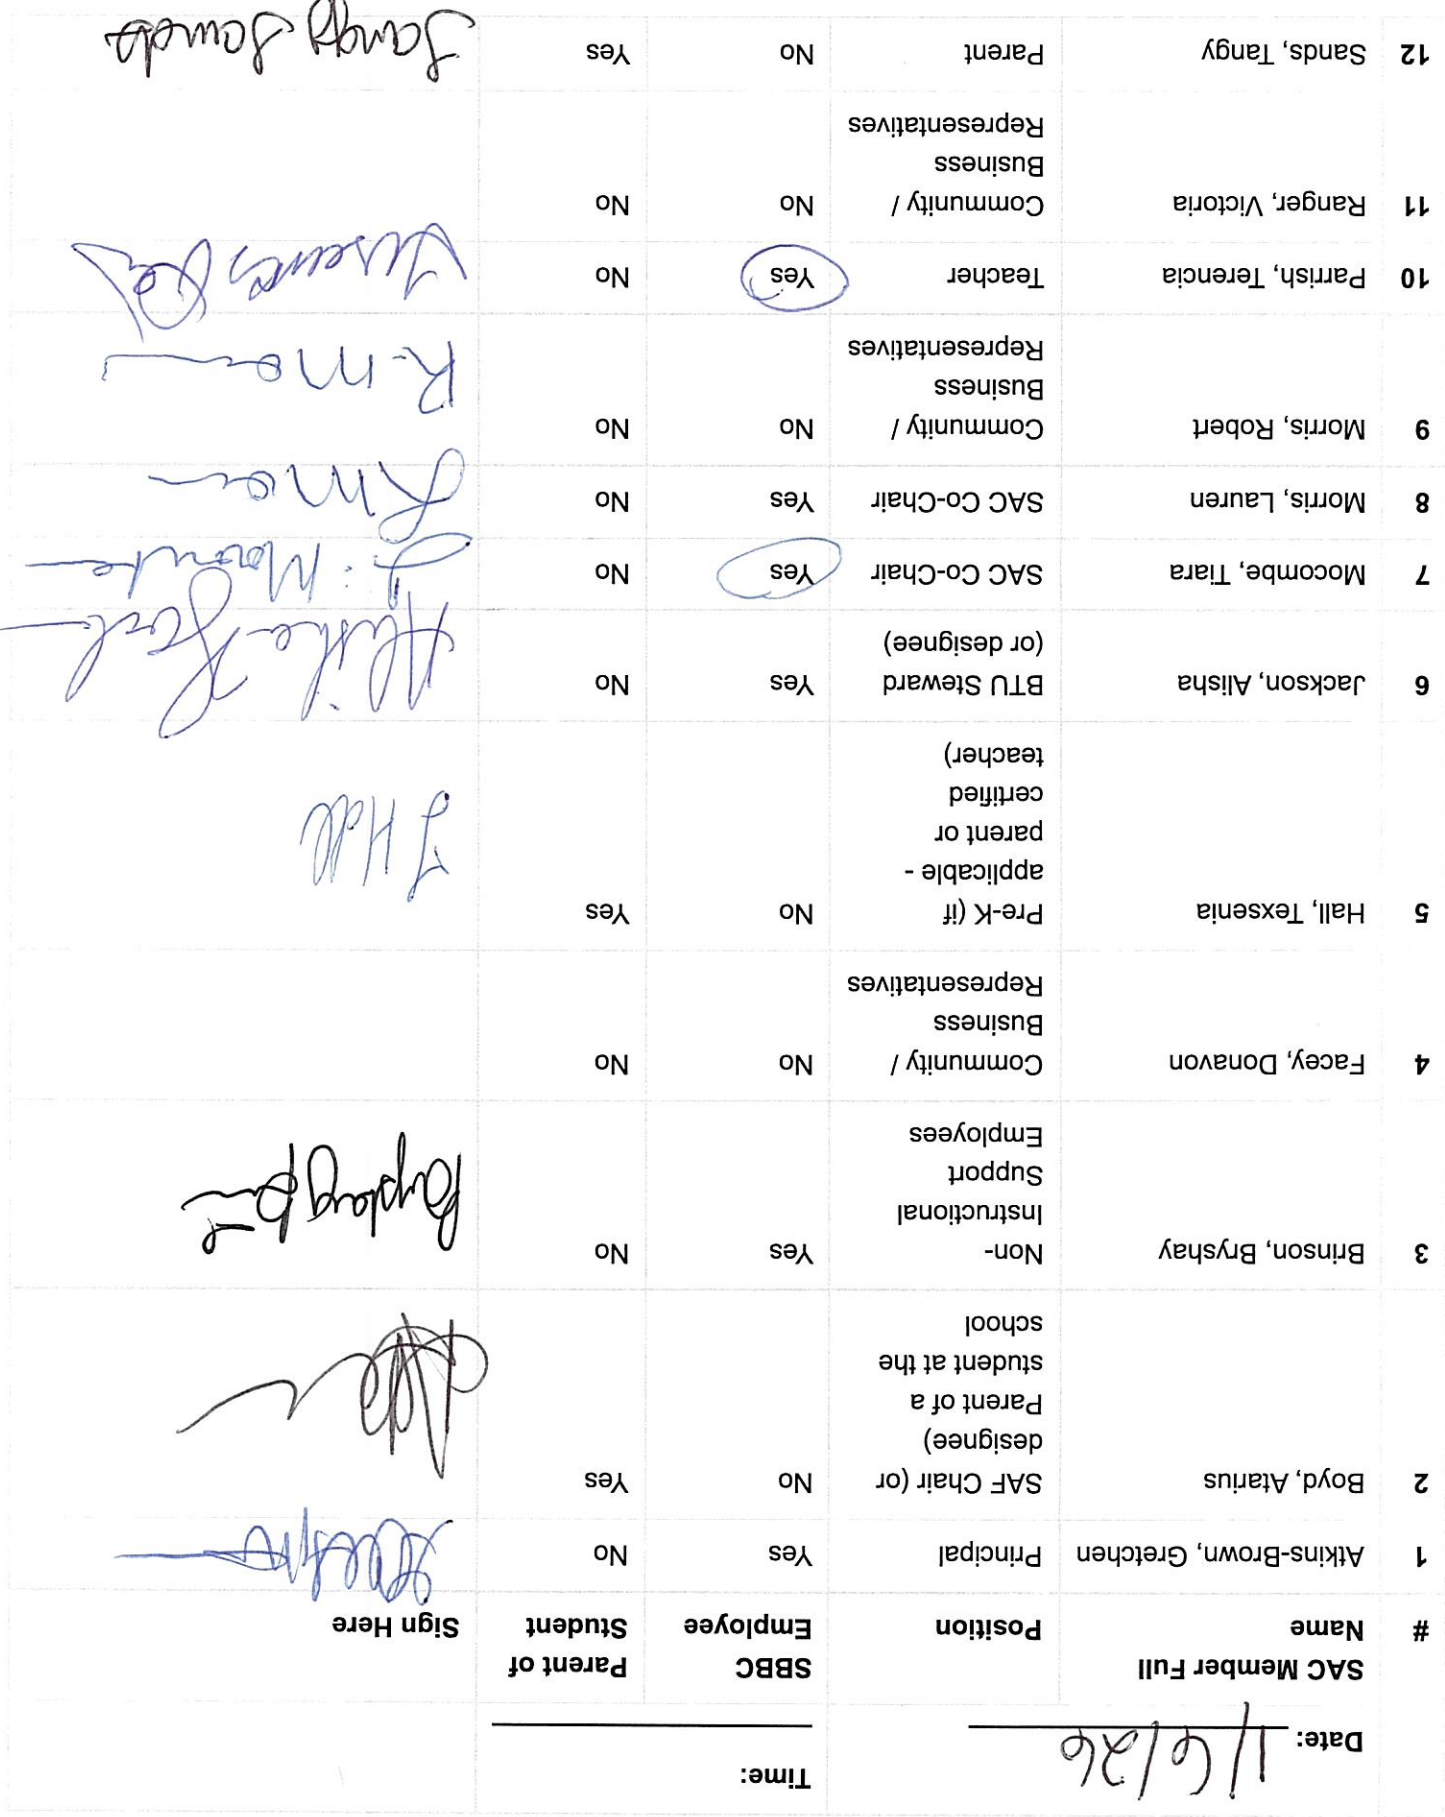 Date: 1/6/26 Time:
# SAC Member Full Name Position SBBC Employee Parent of Student Sign Here
1 Atkins-Brown, Gretchen Principal Yes No
2 Boyd, Atarius SAF Chair (or designee) Parent of a student at the school No Yes
3 Brinson, Bryshay Non-Instructional Support Employees Yes No
4 Facey, Donavon Community / Business Representatives No No
5 Hall, Texsenia Pre-K (if applicable - parent or certified teacher) No Yes T Hall
6 Jackson, Alisha BTU Steward (or designee) Yes No Alisha
7 Mocombe, Tiara SAC Co-Chair Yes No
8 Morris, Lauren SAC Co-Chair Yes No
9 Morris, Robert Community / Business Representatives No No
10 Parrish, Terencia Teacher Yes No
11 Ranger, Victoria Community / Business Representatives No No
12 Sands, Tangy Parent No Yes Tangy Sands